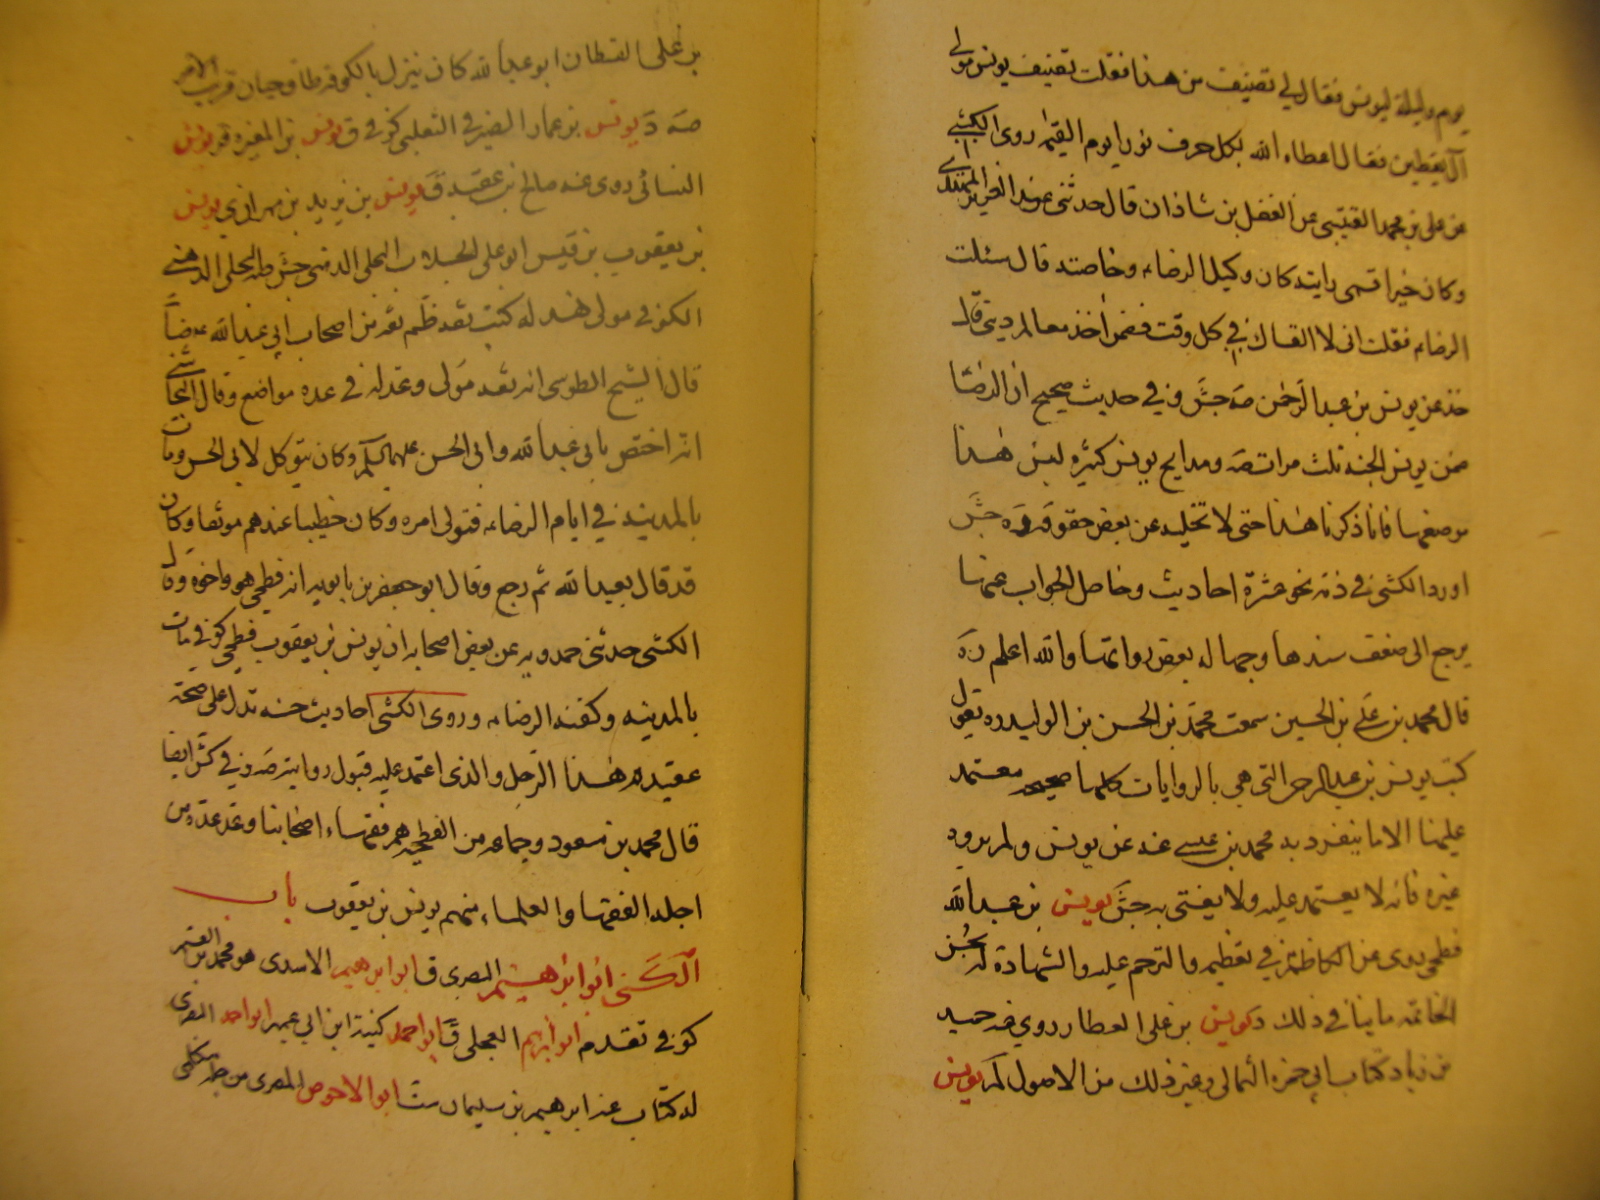 يوم وليلة ليونس فقال لي تصنيف من هذا فقلت تصنيف يونس مولى
آل يقطين فقال اعطاه الله بكل حرف نورا يوم القيمة روى الكشي
عن علي بن محمد القتيبي عن الفضل بن شاذان قال حدثني عبد العزيز بن المهتدي
وكان خير قمي رايته كان وكيل الرضاء وخاصته قال سئلت
الرضاء فقلت اني لا القاك في كل وقت فعمن آخذ معالم ديني قال
خذ عن يونس بن عبد الرحمن صه جش وفي حديث صحيح ان الرضا
ضمن ليونس الجنه ثلث مرات صه ومدايح يونس كثيرة ليس هذا
موضعها فانا ذكرنا هذا حتى لا نخليه عن بعض حقوقه ره جش
اورد الكشي في ذمه نحو عشرة احاديث وحاصل الجواب عنها
يرجع الى ضعف سندها وجهاله بعض رواتها والله اعلم
قال محمد بن علي بن الحسين سمعت محمد بن الحسن بن الوليد ره يقول
كتب يونس بن عبد الرحمن التي هي بالروايات كلها صحيحه معتمد
عليها الا ما ينفرد به محمد بن عيسى عنه عن يونس ولم يروه
غيره فانه لا يعتمد عليه ولا يفتى به جش يونس بن عبد الله
فطحي روى عن الكاظم في تعظيم والترحم عليه والشهادة له بحسن
الخاتمه ما ينافي ذلك يونس بن علي العطار روى عنه حميد
بن زياد كتاب ابي حمزة الثمالي وغير ذلك من الاصول لم يونس
بن علي القطان ابو عبد الله كان ينزل بالكوفه طاق حيان قريب
صه د يونس بن عمار الصيرفي التغلبي كوفي ق يونس بن المغيرة قر يونس
النسائي روى عنه صالح بن عقبة ق يونس بن يزيد بن مهران ي يونس
بن يعقوب بن قيس ابو علي الجلاب البجلي الدهني جش صه البجلي الدهني
الكوفي مولى نهد له كتب ثقه ظم ثقه من اصحاب ابي عبد الله ضا
قال الشيخ الطوسي انه ثقه مولى وعد له في عده مواضع وقال النجاشي
انه اختص بابي عبد الله وابي الحسن عليهما السلم وكان يتوكل لابي الحسن ومات
بالمدينه في ايام الرضاء فتولى امره وكان خطيبا عندهم موثقا وكان
قد قال بعبد الله ثم رجع وقال ابو جعفر بن بابويه انه فطحي هو واخوه وقال
الكشي حدثني حمدويه عن بعض اصحابه ان يونس بن يعقوب فطحي كوفي مات
بالمدينه وكفنه الرضاء وروى الكشي احاديث حسنه تدل على صحة
عقيدة هذا الرجل والذي اعتمد عليه قبول روايته صه وفي كش ايضا
قال محمد بن مسعود وجماعه من الفطحيه هم فقهاء اصحابنا وعد عدة من
اجله الفقها والعلماء منهم يونس بن يعقوب باب
الكنى ابو ابراهيم البصري ق ابو ابراهيم الاسدي هو محمد بن القسم
كوفي تقدم ابو ابراهيم العجلي ق ابو احمد كنية ابن ابي عمير ابو احمد البصري
له كتاب عنه ابراهيم بن سليمان ست ابو الاحوص المصري من جله متكلمي